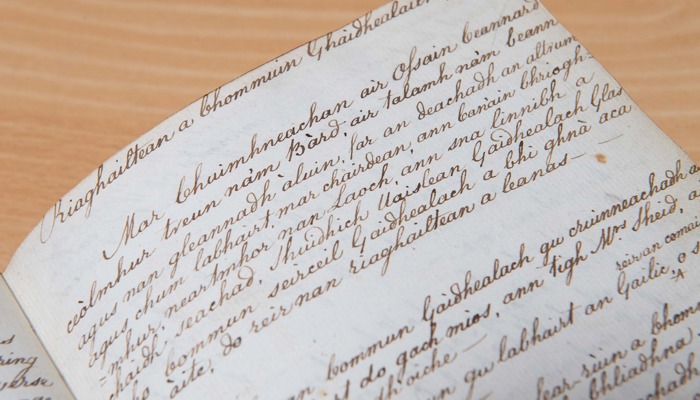 Riaghailtean a Chommuin Ghàidhealaich
Mar Chuimhneachan air Ossain beannard
ceòlmhur treun nám Bàrd, air talamh nám beann
agus nan gleannadh àluin, far an deachadh an altrum
agus chum labhairt mar chàirdean, ann canain bhriogh
=mhur, neartmhor nan Laoch, ann sna linnibh a
chaidh seachad, Shuidhich Uaislean Gaidhealach Glas
cho bommun seirceil Gaidhealach a bhi ghnà aca
àite, do reir nan riaghailtean a leanas —
an bommun Gàidhealach gu cruinneachadh a
t do gach mios, ann tigh Mrs Sheid,
th oiche —
reir an comai
un gu labhairt an Gailic, o s
fear-rùin a bhom
bhliadhna
s
ring
verse